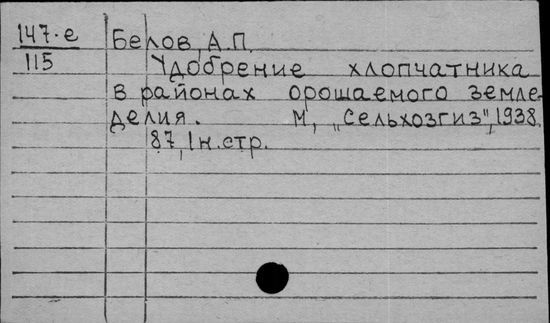 147-е
115
Белов, А.П.
Удобрение хлопчатника
в районах орошаемого земле-
делия. М, „Сельхозгиз", 1938.
87, 1 н. стр.